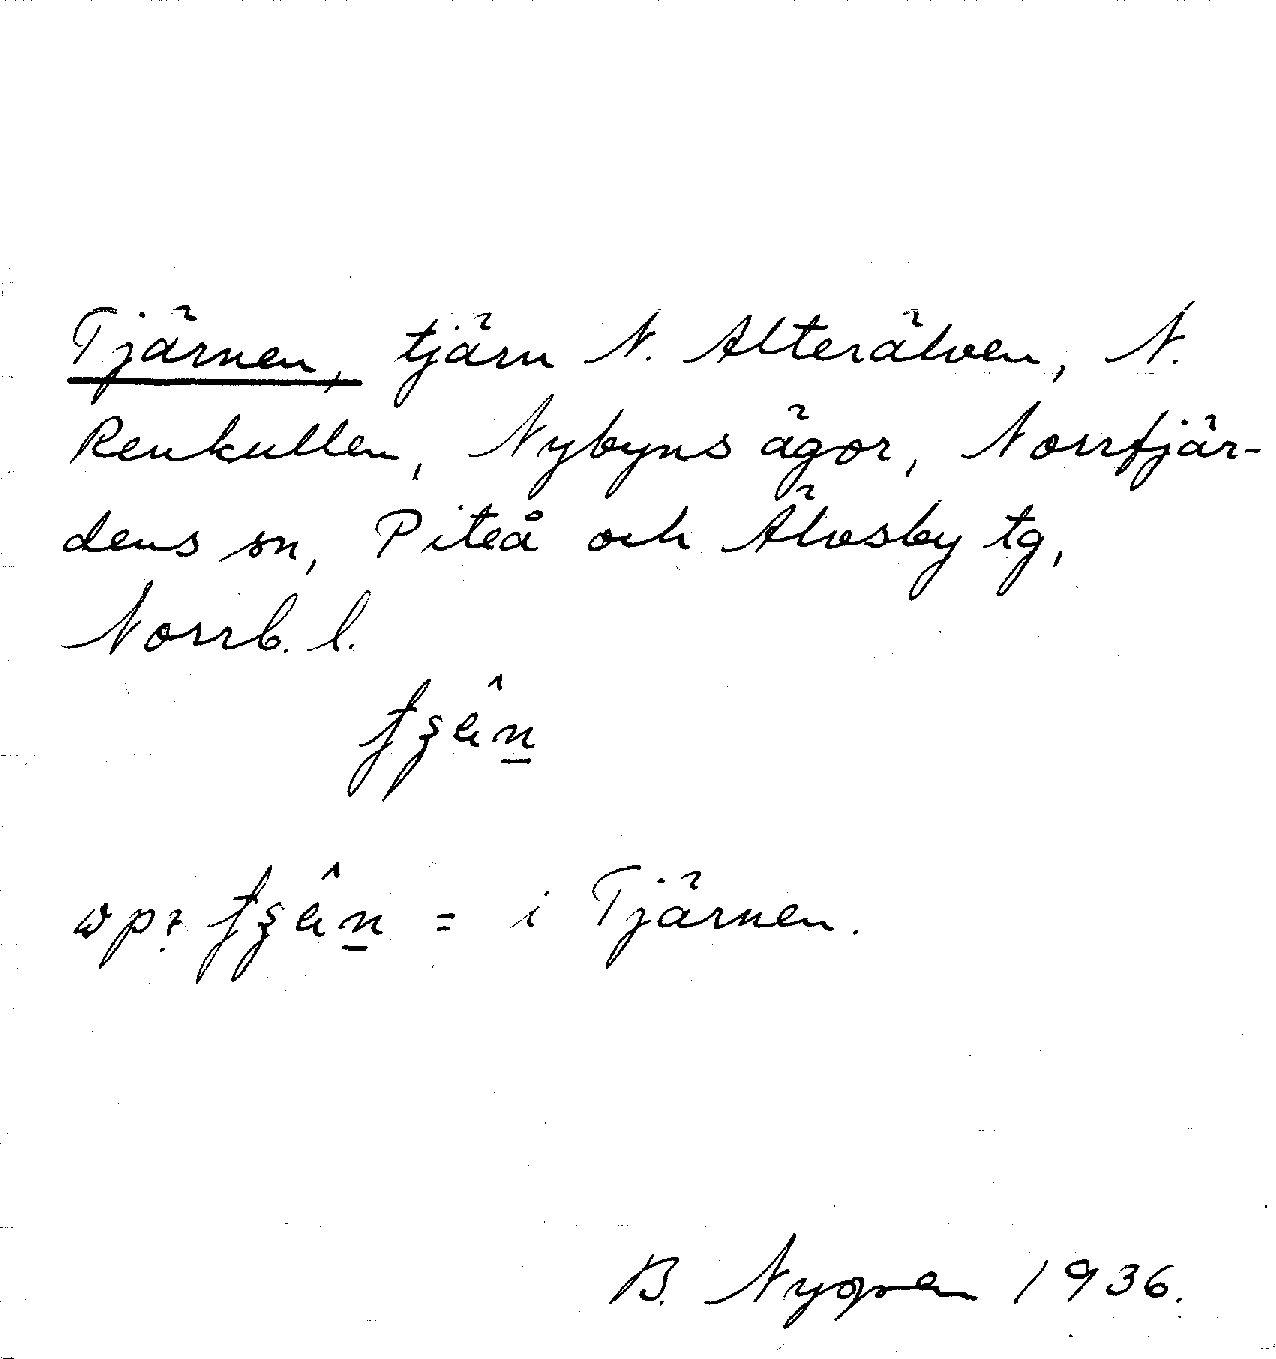 Tjärnen, tjärn N. Alterälven, N.
Renkullen, Nybyns ägor, Norrfjär-
dens sn, Piteå och Älvsby tg,
Norrb. l.
= i Tjärnen.
B. Nygren 1936.